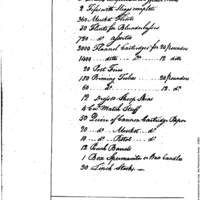 2 Fifes with Slings complete
360 Musket Flints
50 Flints for Blunderbusses
720 .. do assorted
3000 Flannel Cartridges for 20 Pounders
1400 .. ditto .. do .. 12 ditto
20 Port Fires
120 Priming Tubes 20 Pounders
60 do 12 do
12 Sheep Skins
4 Cwt Match Stuff
50 Quire of Cannon Cartridge Paper
20 .. do .. Musket .. do
10 .. do .. Pistol .. do
12 Punch Barrels
1 Box Spermaceti or Wax Candles
20 Linch Stocks